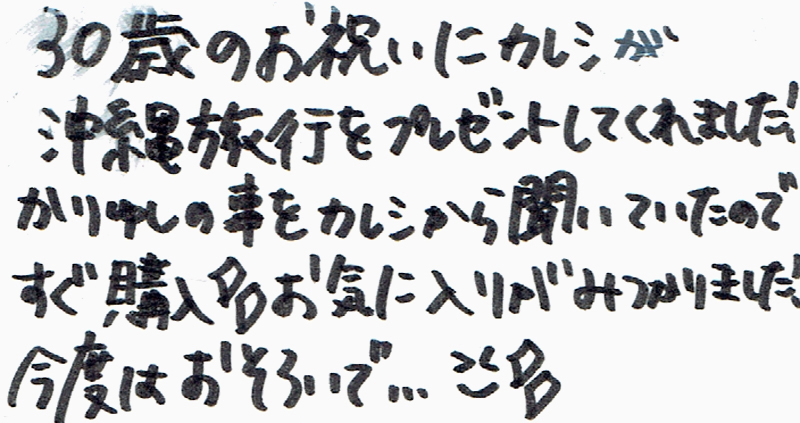 30歳のお祝いにカレシが
沖縄旅行をプレゼントしてくれました!
かりゆしの事をカレシから聞いていたので
すぐ購入♪お気に入りがみつかりました!
今度はおそろいで…♪